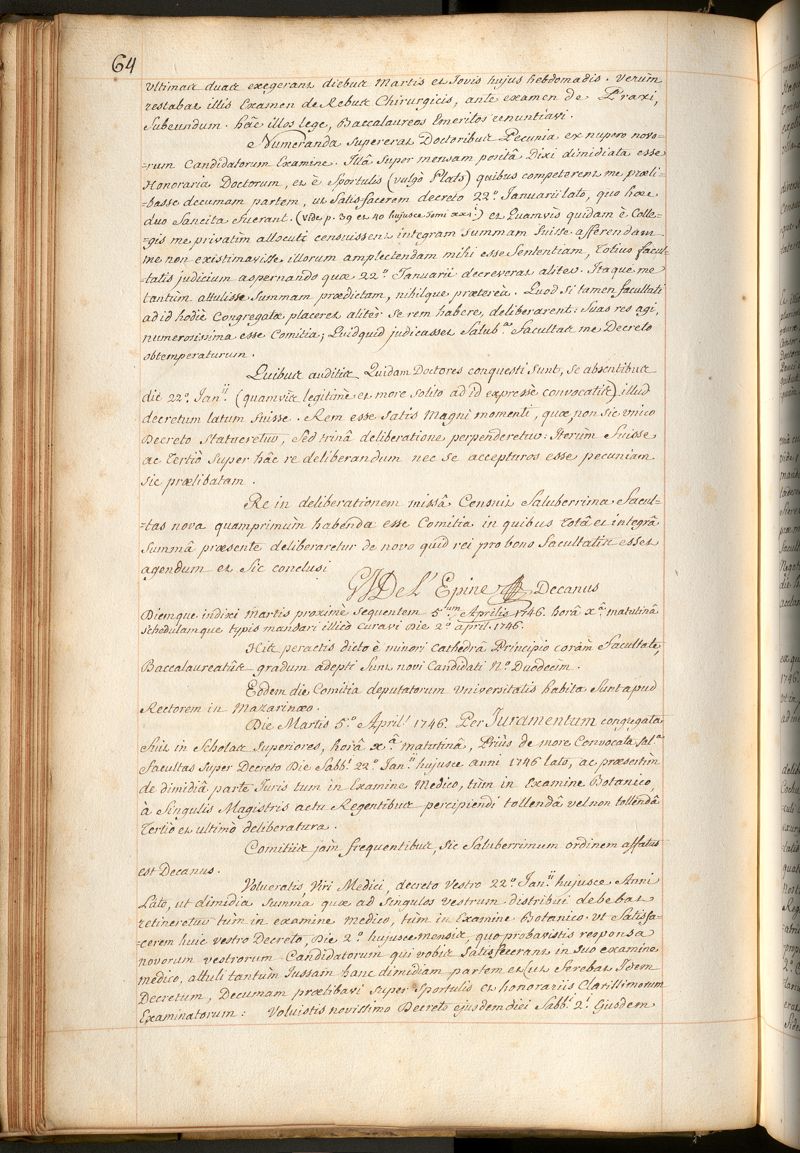 64
ultimas duas exegerant diebus Martis et Jovis hujus hebdomadis. Verùm
restabat illis Examen de Rebus Chirurgicis, ante examen de Praxi,
Subeundum. hâc illos lege, Baccalaureos Emeritos renuntiavi.
e Numeranda Supererat Doctoribus Pecunia ex nupero novo-
=rum Candidatorum Examine. Illâ Super mensam positâ Dixi dimidiata esse
Honoraria Doctorum, et è Sportulis (vulgò Plats) quibus competerent me præli-
=basse decumam partem, ut Satisfacerem decreto 22.º Januarii lato, quo hæc
duo Sancita fuerant. (vide p. 39 et 40 hujusce Tomi xxi.) et Quamvis quidam è Colle-
=gis me privatim allocuti censuissent integram Summam fuisse afferendam
me non existimavisse illorum amplectendam mihi esse Sententiam, totius facul-
tatis judicium aspernando quæ 22.º Januarii decreverat aliter. Itaque me
tantùm attulisse Summam prædictam, nihilque prætereà. Quod Si tamen facultati
ad id hodiè Congregatæ placeret aliter Se rem habere, deliberarent: Suas res agi,
numerosissima esse Comitia; Quidquid judicasset Salub.ª Facultas me Decreto
obtemperaturum.
Quibus auditis Quidam Doctores conquesti Sunt, Se absentibus
die 22.º Jan.ii (quamvis legitimè et more solito ad id expressè convocatis) illud
decretum latum fuisse. Rem esse Satis Magni momenti, quæ, non sic unico
Decreto Statueretur, Sed trinâ deliberatione perpenderetur. Iterùm fuisse
ac Tertiò Super hâc re deliberandum nec Se accepturos esse pecuniam
Sic prælibatam.
Re in deliberationem missâ Censuit Saluberrima Facul-
=tas nova quamprimum habenda esse Comitia in quibus totâ et integrâ
Summâ præsente deliberaretur de novo quid rei pro bono Facultatis esset
agendum et Sic conclusi
GJ De L'Epine Decanus
Diemque indixi Martis proximè Sequentem 5.tum Aprilis 1746. horâ x.â matutinâ
Schedulamque typis mandari illicò curavi Die 2.º april. 1746.
His peractis dicto è minori Cathedrâ Principio coràm Facultate,
Baccalaureatûs gradum adepti Sunt novi Candidati N.º Duodecim.
Eodem die Comitia deputatorum Universitatis habita Sunt apud
Rectorem in Mazarinæo.
Die Martis 5.º April.i 1746. Per Juramentum congregata
fuit in Scholas Superiores, horâ x.â matutinâ, Priùs de more Convocata Sal.a
Facultas Super Decreto Die Sabb.i 22.º Jan.ii hujusce anni 1746 lato, ac præsertìm
de dimidiâ parte Juris tum in Examine Medico, tùm in Examine Botanico,
à Singulis Magistris actu Regentibus percipiendi tollendâ vel non tollendâ
Tertiò et ultimò deliberatura.
Comitiis jàm frequentibus, Sic Saluberrimum ordinem affatus
est Decanus.
Volueratis, Viri Medici, decreto Vestro 22.º Jan.ii hujusce Anni
Lato, ut dimidia Summa quæ ad Singulos vestrum distribui debebat
retineretur tùm in examine medico, tùm in Examine Botanico. Ut Satisfa-
cerem huic vestro Decreto, Die 2.º hujusce mensis, quo probavistis responsa
novorum vestrorum Candidatorum qui vobis Satisfecerant in Suo examine
medico, attuli tantùm Jussam hanc dimidiam partem et (ut ferebat Idem
Decretum, Decumam prælibavi Super Sportulis et honorariis Clarissimorum
Examinatorum: Voluistis novissimo Decreto ejusdem diei Sabb.i 2.i Ejusdem